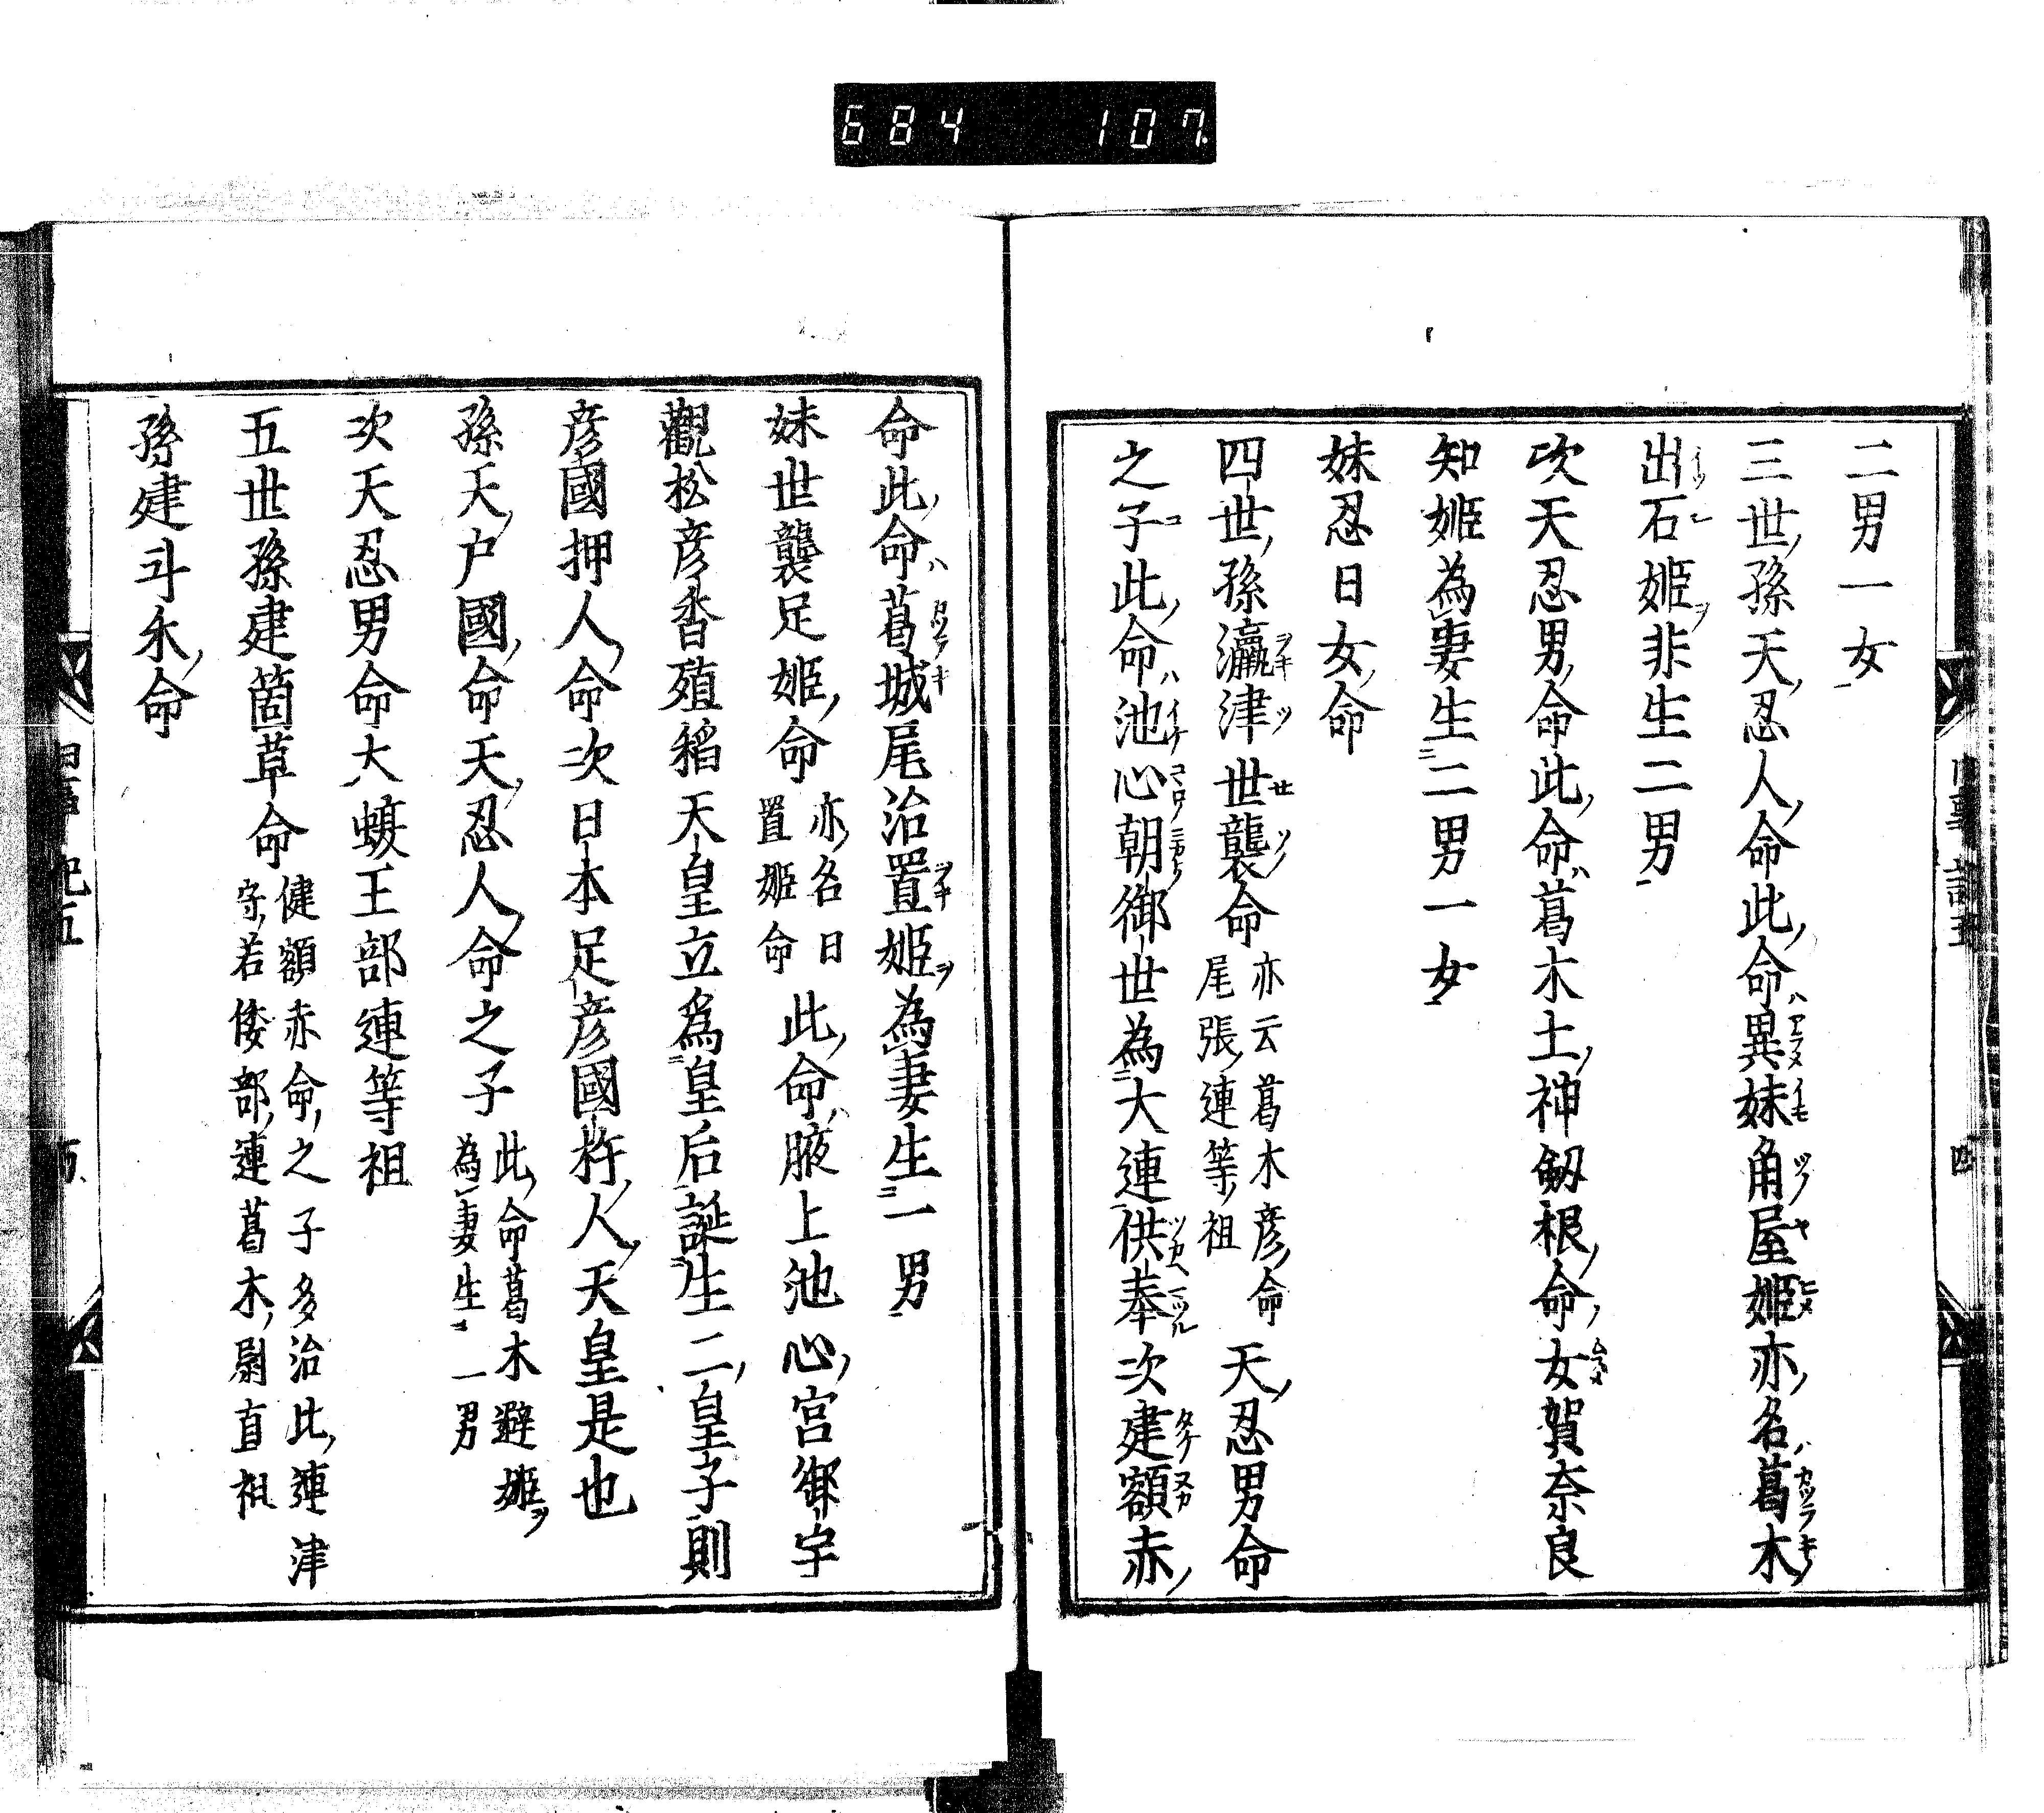 684 107
二男一女
三世孫天忍人命此命異妹角屋姫亦名葛木
出石姫非生二男
次天忍男命此命葛木土神劔根命女賀奈良
知姫為妻生二男一女
妹忍日女命
四世孫瀛津世襲命亦云葛木彦命尾張連等祖天忍男命
之子此命池心朝御世為大連供奉次建額赤
命此命葛城尾治置姫為妻生一男
妹世襲足姫命亦名日置姫命此命腋上池心宮御宇
觀松彦香殖稻天皇立為皇后誕生二皇子則
彦國押人命次日本足彦國杵人天皇是也
孫天戸國命天忍人命之子此命葛木避姫為妻生一男
次天忍男命大蝮王部連等祖
五世孫建箇草命健額赤命之子多治比連津守若倭部連葛木尉直祖
孫建斗米命